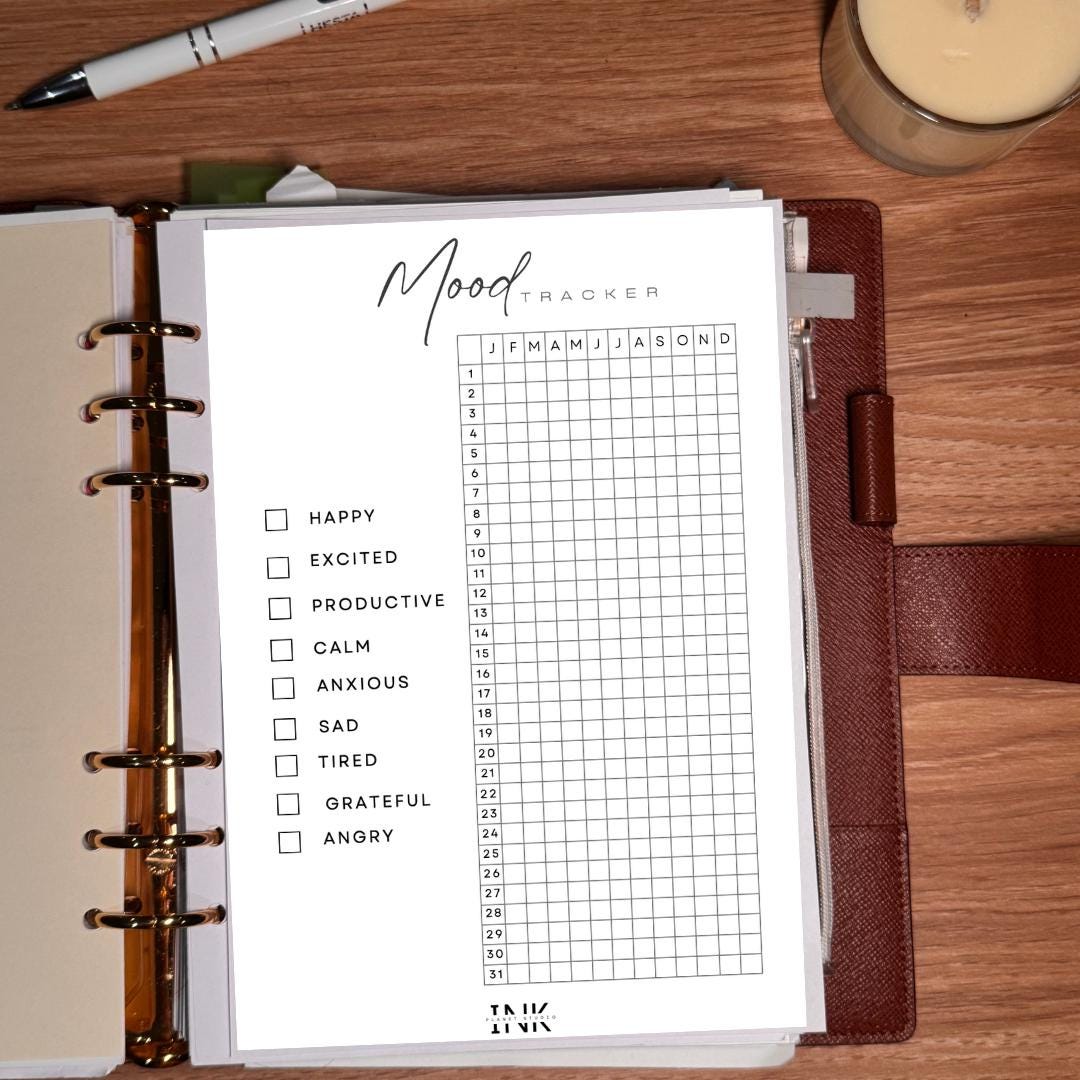 HESTA
Mood TRACKER
J F M A M J J A S O N D
1
2
3
4
5
6
7
8
9
10
11
12
13
14
15
16
17
18
19
20
21
22
23
24
25
26
27
28
29
30
31
HAPPY
EXCITED
PRODUCTIVE
CALM
ANXIOUS
SAD
TIRED
GRATEFUL
ANGRY
INK
PLANET STUDIO